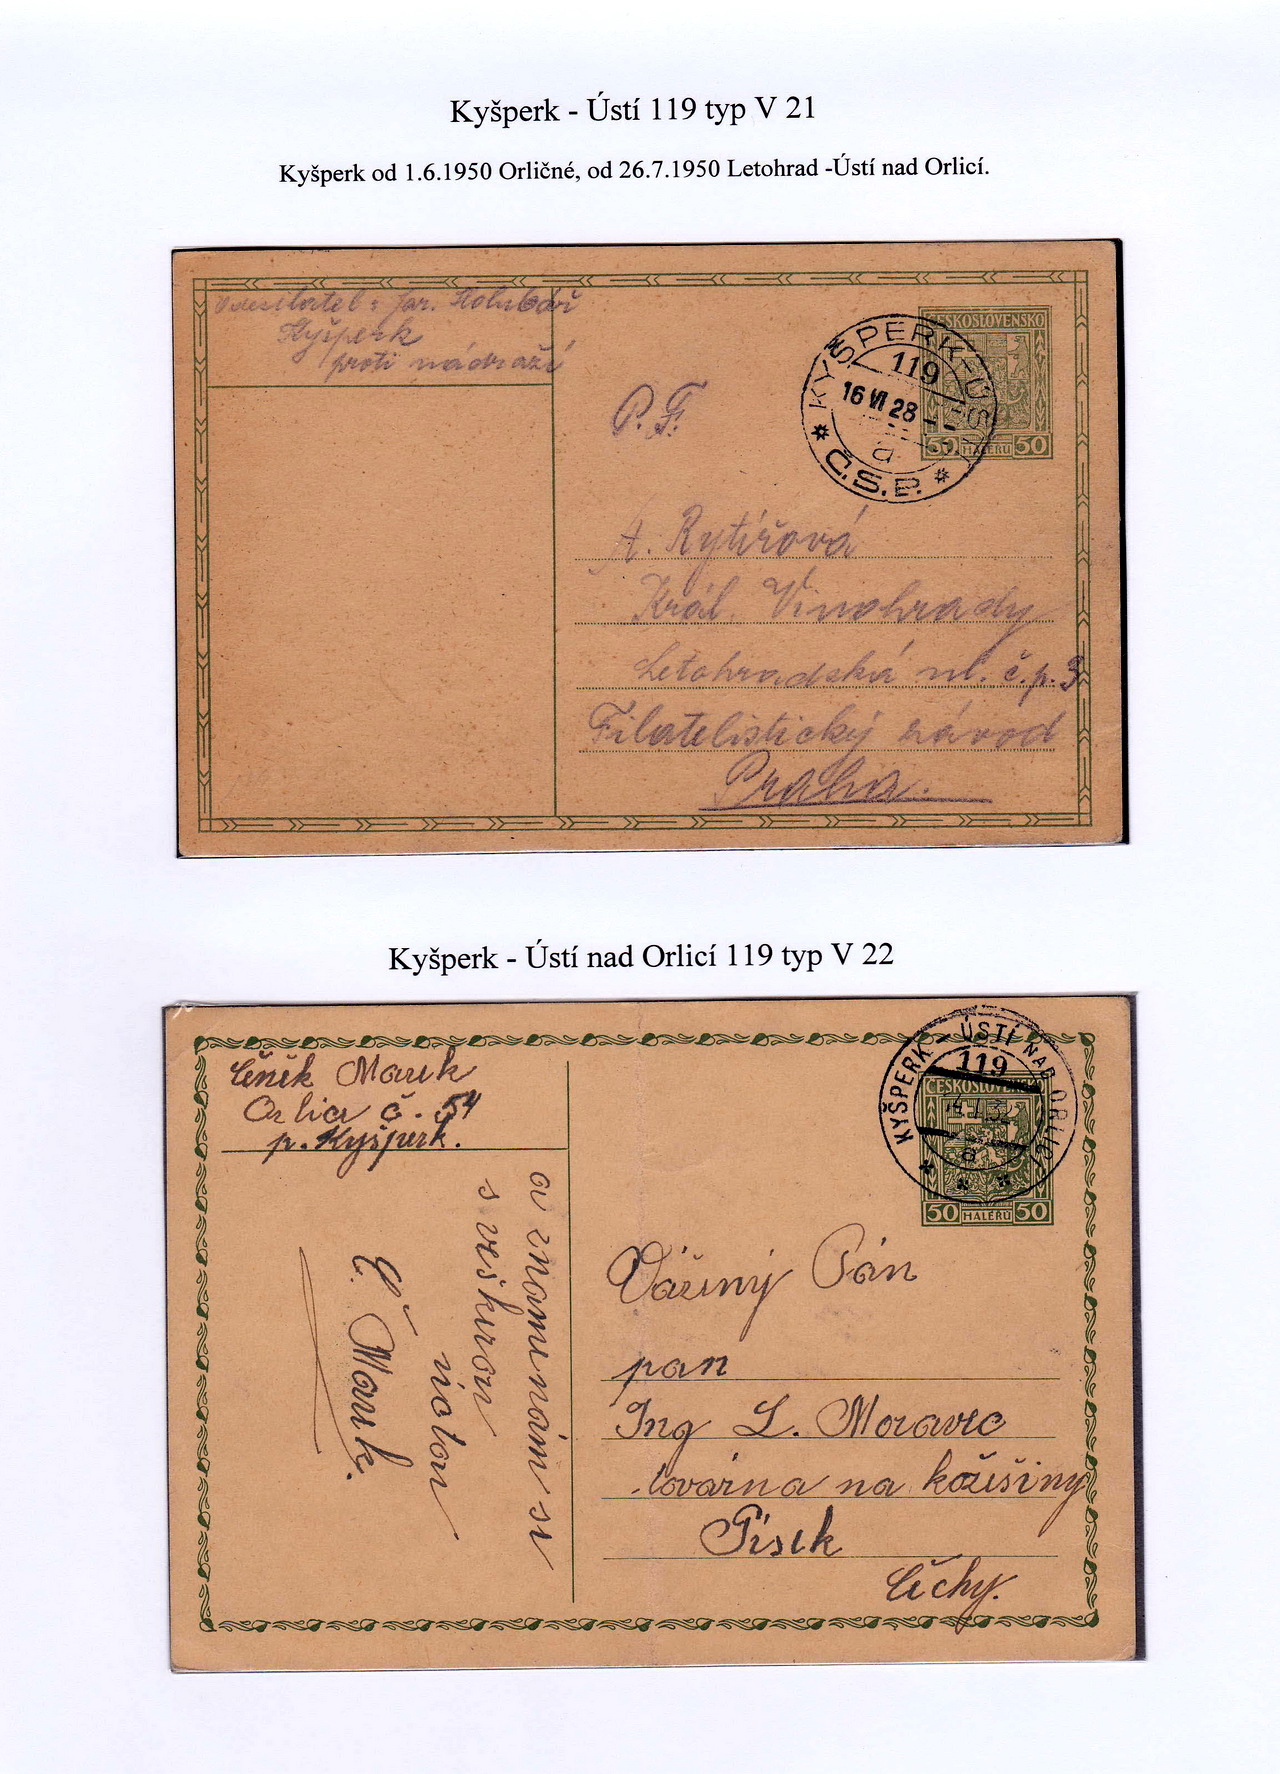 Kyšperk - Ústí 119 typ V 21
Kyšperk od 1.6.1950 Orličné, od 26.7.1950 Letohrad -Ústí nad Orlicí.
Odesílatel: Jar. Holubář
Kyšperk
proti nádraží
ČESKOSLOVENSKO
50 HALÉŘŮ 50
KYŠPERK-ÚSTÍ
119
16 VI 28
a
Č.S.P.
P. F.
A. Rytířová
Král. Vinohrady
Letohradská ul. č.p. 3
Filatelistický závod
Praha.
Kyšperk - Ústí nad Orlicí 119 typ V 22
Čeněk Marek
Orlice č. 54
p. Kyšperk.
KYŠPERK - ÚSTÍ NAD ORLICÍ
119
a
ČESKOSLOVENSKO
50 HALÉŘŮ 50
a znamenám se
s veškerou
úctou
Č. Marek.
Vážený Pán
pan
Ing L. Moravec
továrna na kožešiny
Písek
Čechy.